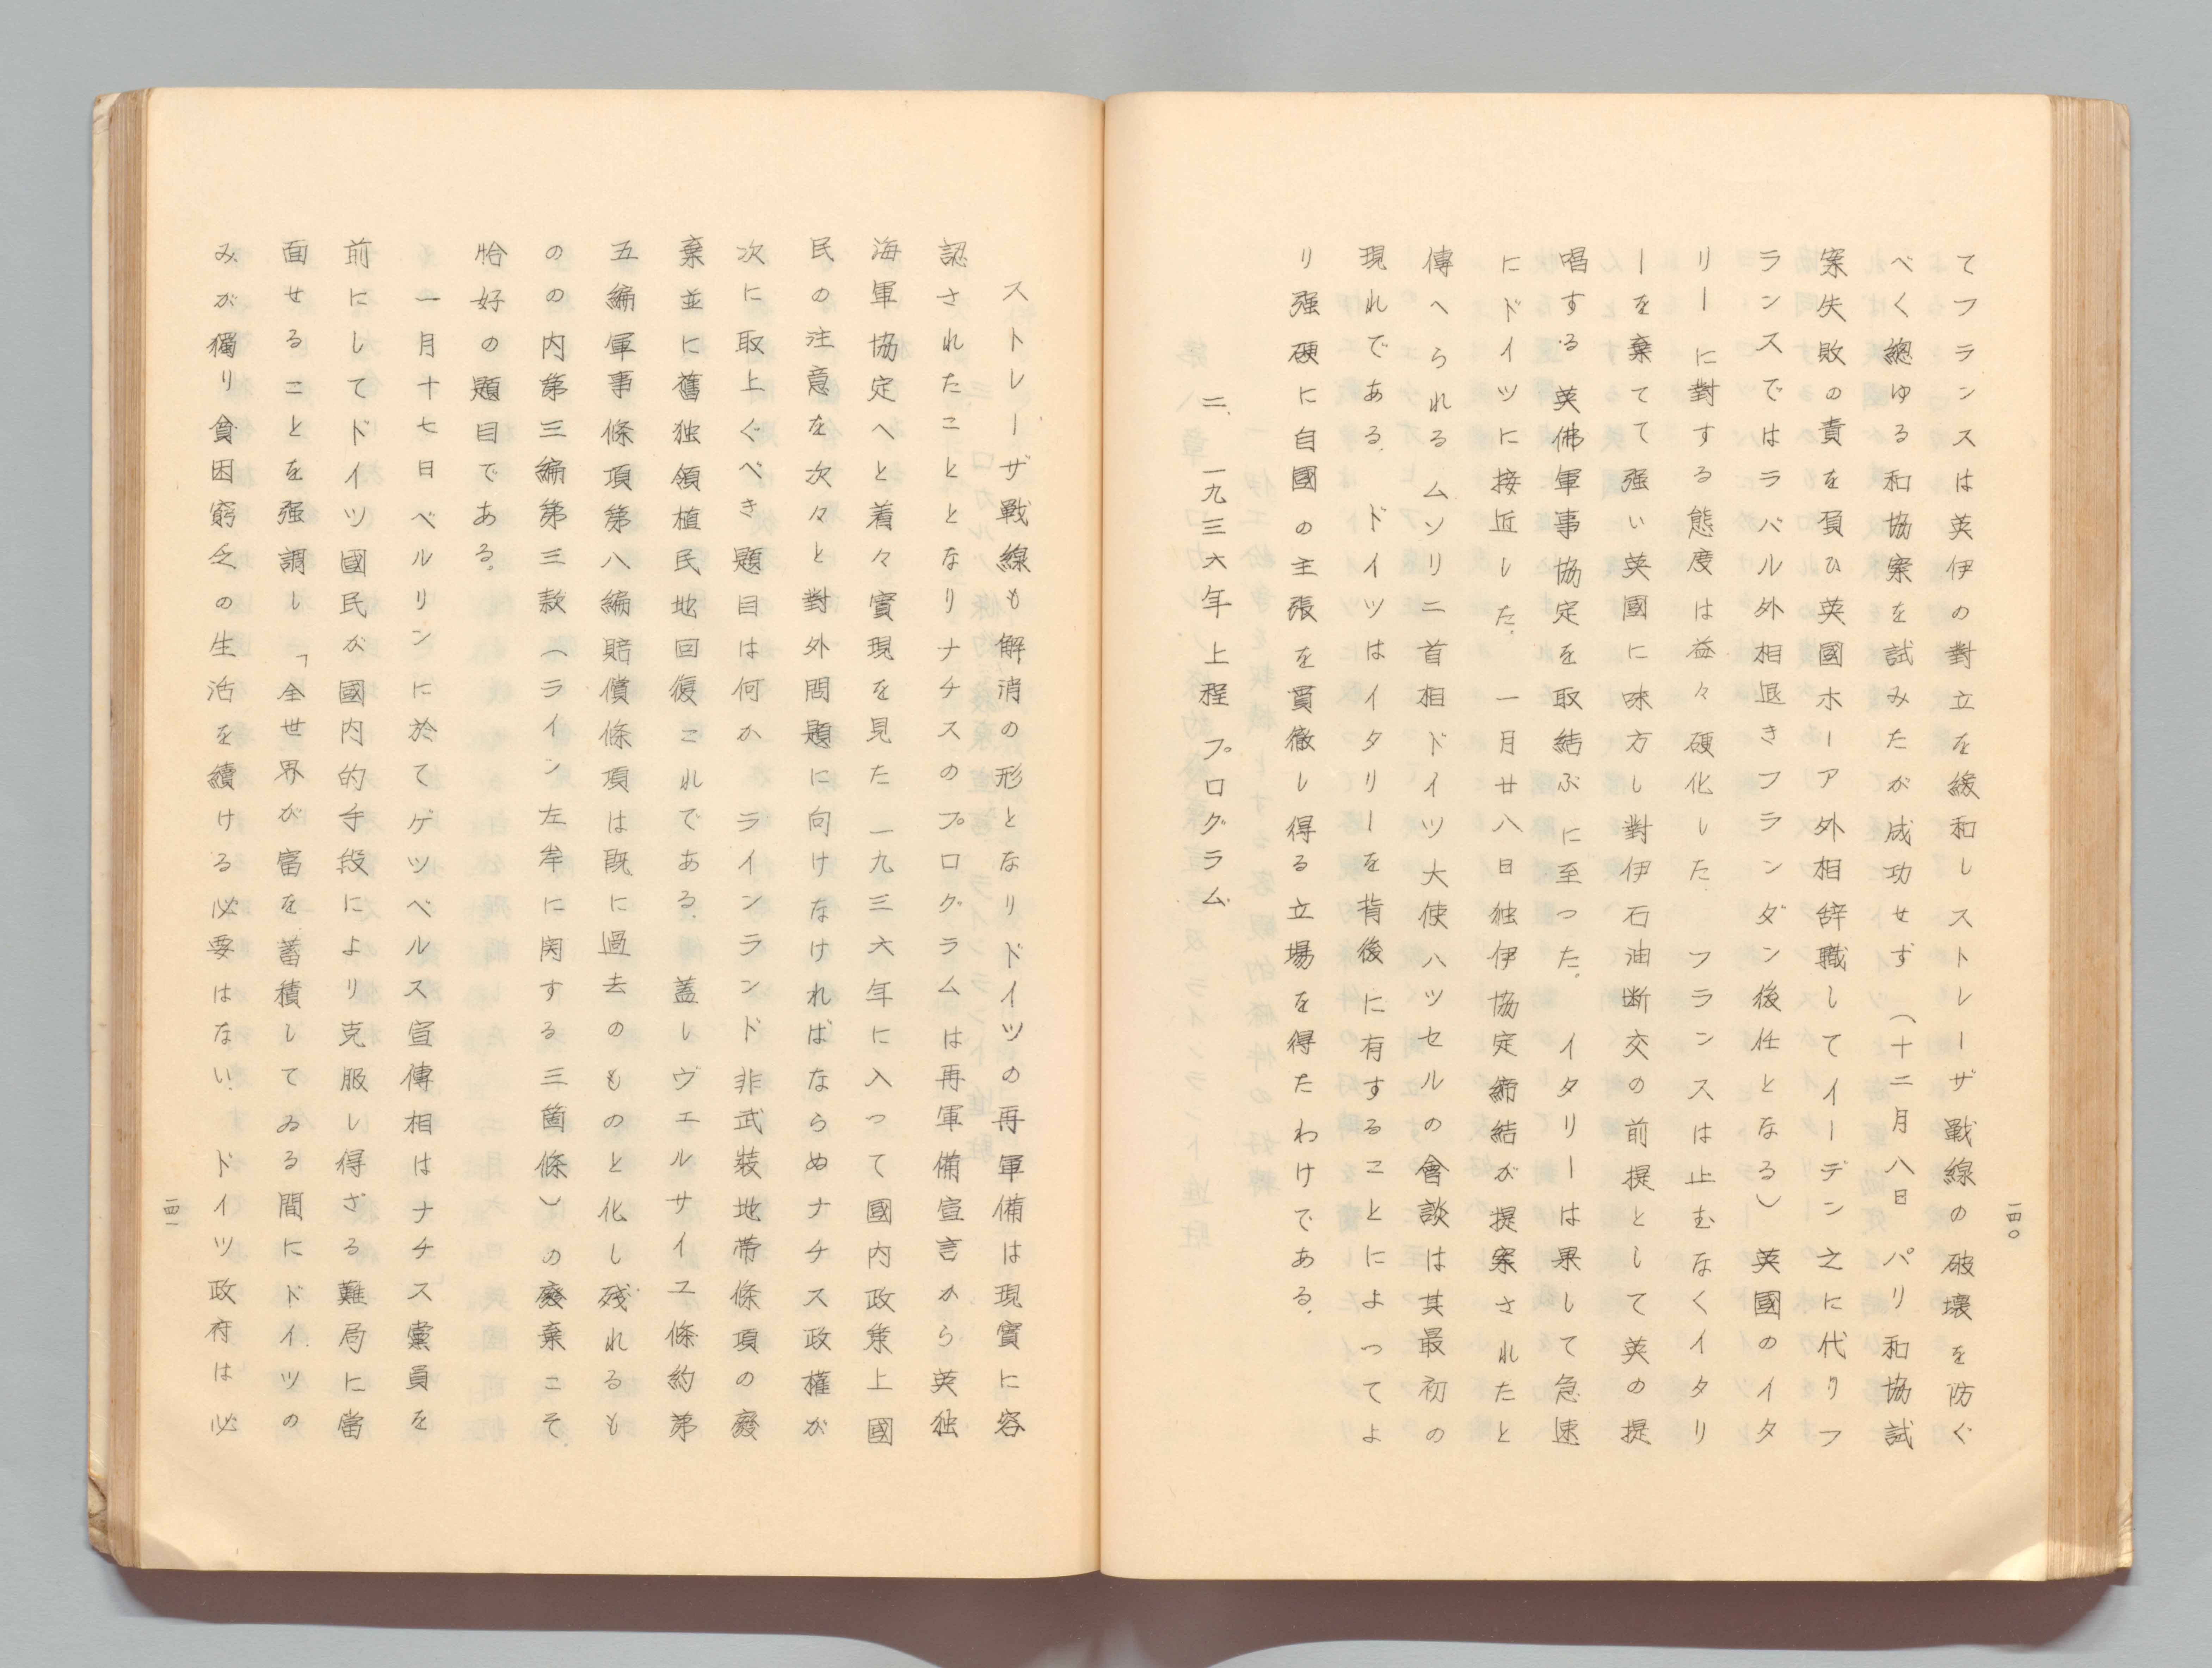 てフランスは英伊の對立を緩和しストレーザ戰線の破壞を防ぐ
べく總ゆる和協案を試みたが成功せず（十二月八日　パリ和協試
案失敗の責を負ひ英國ホーア外相辞職してイーデン之に代りフ
ランスではラバル外相退きフランダン後任となる）英國のイタ
リーに對する態度は益々硬化した　フランスは止むなくイタリ
ーを棄てて强い英國に味方し對伊石油断交の前提として英の提
唱する英佛軍事協定を取結ぶに至つた。イタリーは果して急速
にドイツに接近した。一月廿八日独伊協定締結が提案されたと
傳へられるムソリニ首相ドイツ大使ハツセルの會談は其最初の
現れである。ドイツはイタリーを背後に有することによつてよ
り强硬に自國の主張を貫徹し得る立場を得たわけである。
二、一九三六年上程プログラム
一四〇
ストレーザ戰線も解消の形となりドイツの再軍備は現實に容
認されたこととなりナチスのプログラムは再軍備宣言から英独
海軍協定へと着々實現を見た　一九三六年に入つて國内政策上國
民の注意を次々と對外問題に向けなければならぬナチス政權が
次に取上ぐべき題目は何か　ラインランド非武裝地帶條項の廢
棄並に舊独領植民地回復これである。蓋しヴエルサイユ條約第
五編軍事條項第八編賠償條項は既に過去のものと化し残れるも
のの内第三編第三款（ライン左岸に関する三箇條）の廢棄こそ
恰好の題目である。
一月十七日ベルリンに於てゲツベルス宣傳相はナチス黨員を
前にしてドイツ國民が國内的手段により克服し得ざる難局に當
面せることを强調し「全世界が富を蓄積してゐる間にドイツの
みが獨り貧困窮乏の生活を續ける必要はない。ドイツ政府は必
一四一